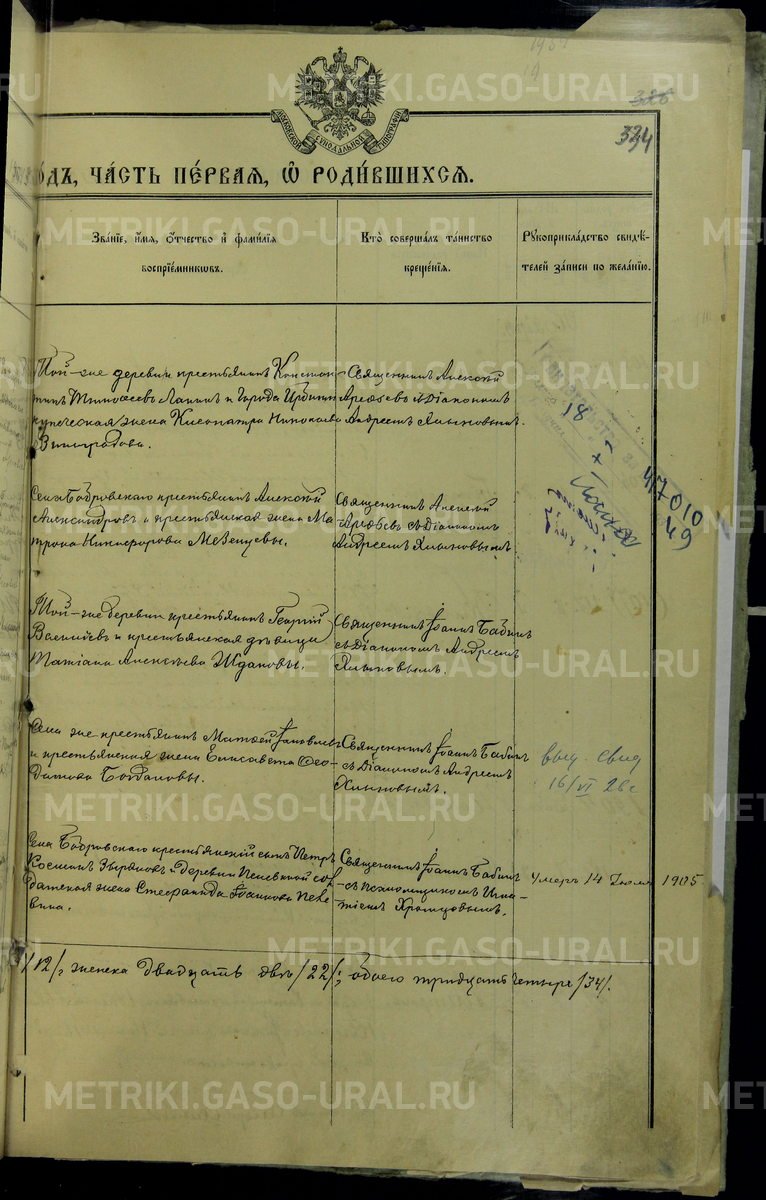 334
МОСКОВСКОЙ СУНОДАЛЬНОЙ ТИПОГРАФІИ
одъ, ча́сть пе́рвая, ѽ роди́вшихся.
Зва́нїе, и҆́мя, ѻ҆́тчество и҆ фами́лїѧ
воспрїе́мникѡвъ.
Кто̀ соверша́лъ та́инство
креще́нїѧ.
Рꙋкоприкла́дство свидѣ́-
телей за́писи по жела́нїю.
Той-же деревни крестьянинъ Констан-
тинъ Тимофеевъ Лапинъ и города Ирбити
купеческая жена Клеопатра Николаева
Виноградова.
Священникъ Алексѣй
Арефьевъ съ Діакономъ
Андреемъ Хлыновымъ.
18
Села Бобровскаго крестьянинъ Алексѣй
Александровъ и крестьянская жена Ма-
трона Никифорова Мезенцевы.
Священникъ Алексѣй
Арефьевъ съ Діакономъ
Андреемъ Хлыновымъ.
417010
49
Той-же деревни крестьянинъ Георгій
Васильевъ и крестьянская дѣвица
Татіана Алексѣева Ждановы.
Священникъ Іоаннъ Бабинъ
съ Діакономъ Андреемъ
Хлыновымъ.
Села же крестьянинъ Матвей
и крестьянская жена Елисавета Фео-
дотова Богдановы.
Священникъ Іоаннъ Бабинъ
съ Діакономъ Андреемъ
Хлыновымъ.
выд. свид
16/VI 26 г
Села Бобровскаго крестьянскій сынъ Петръ
Косминъ Зыряновъ и деревни Пеневской сол-
датская жена Стефанида Іоаннова Пене-
вина.
Священникъ Іоаннъ Бабинъ
съ псаломщикомъ Игна-
тіемъ Храмцовымъ.
Умеръ 14 Іюля 1905
/12/, женска двадцать двѣ /22/; обоего тридцать четыре /34/.
METRIKI.GASO-URAL.RU